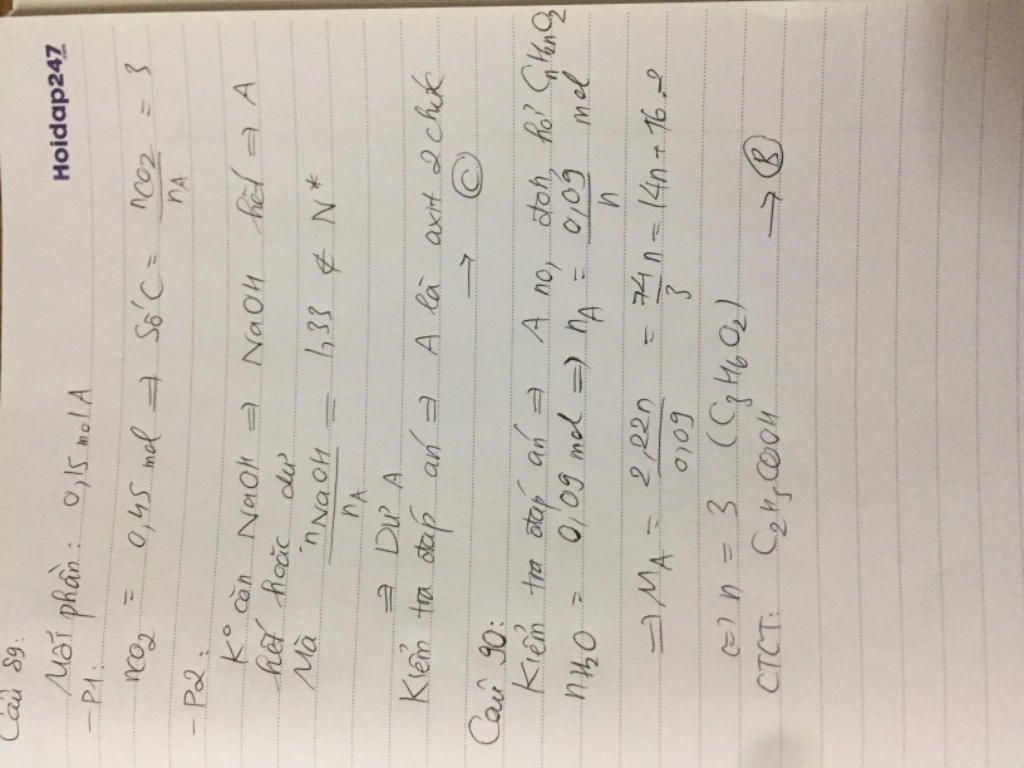 Hoidap247
Câu 89:
Mỗi phần: 0,15 mol A
- P1:
nCO2 = 0,45 mol => Số C = nCO2/nA = 3
- P2:
K° cần NaOH => NaOH hết => A
hết hoặc dư
Mà nNaOH/nA = 1,33 ∉ N*
=> Dư A
Kiểm tra đáp án => A là axit 2 chức
→ C
Câu 90:
Kiểm tra đáp án => A no, đơn hở CnH2nO2
nH2O = 0,09 mol => nA = 0,09/n mol
=> MA = 2,22n/0,09 = 74n/3 = 14n + 16.2
<=> n = 3 (C3H6O2)
CTCT: C2H5COOH → B